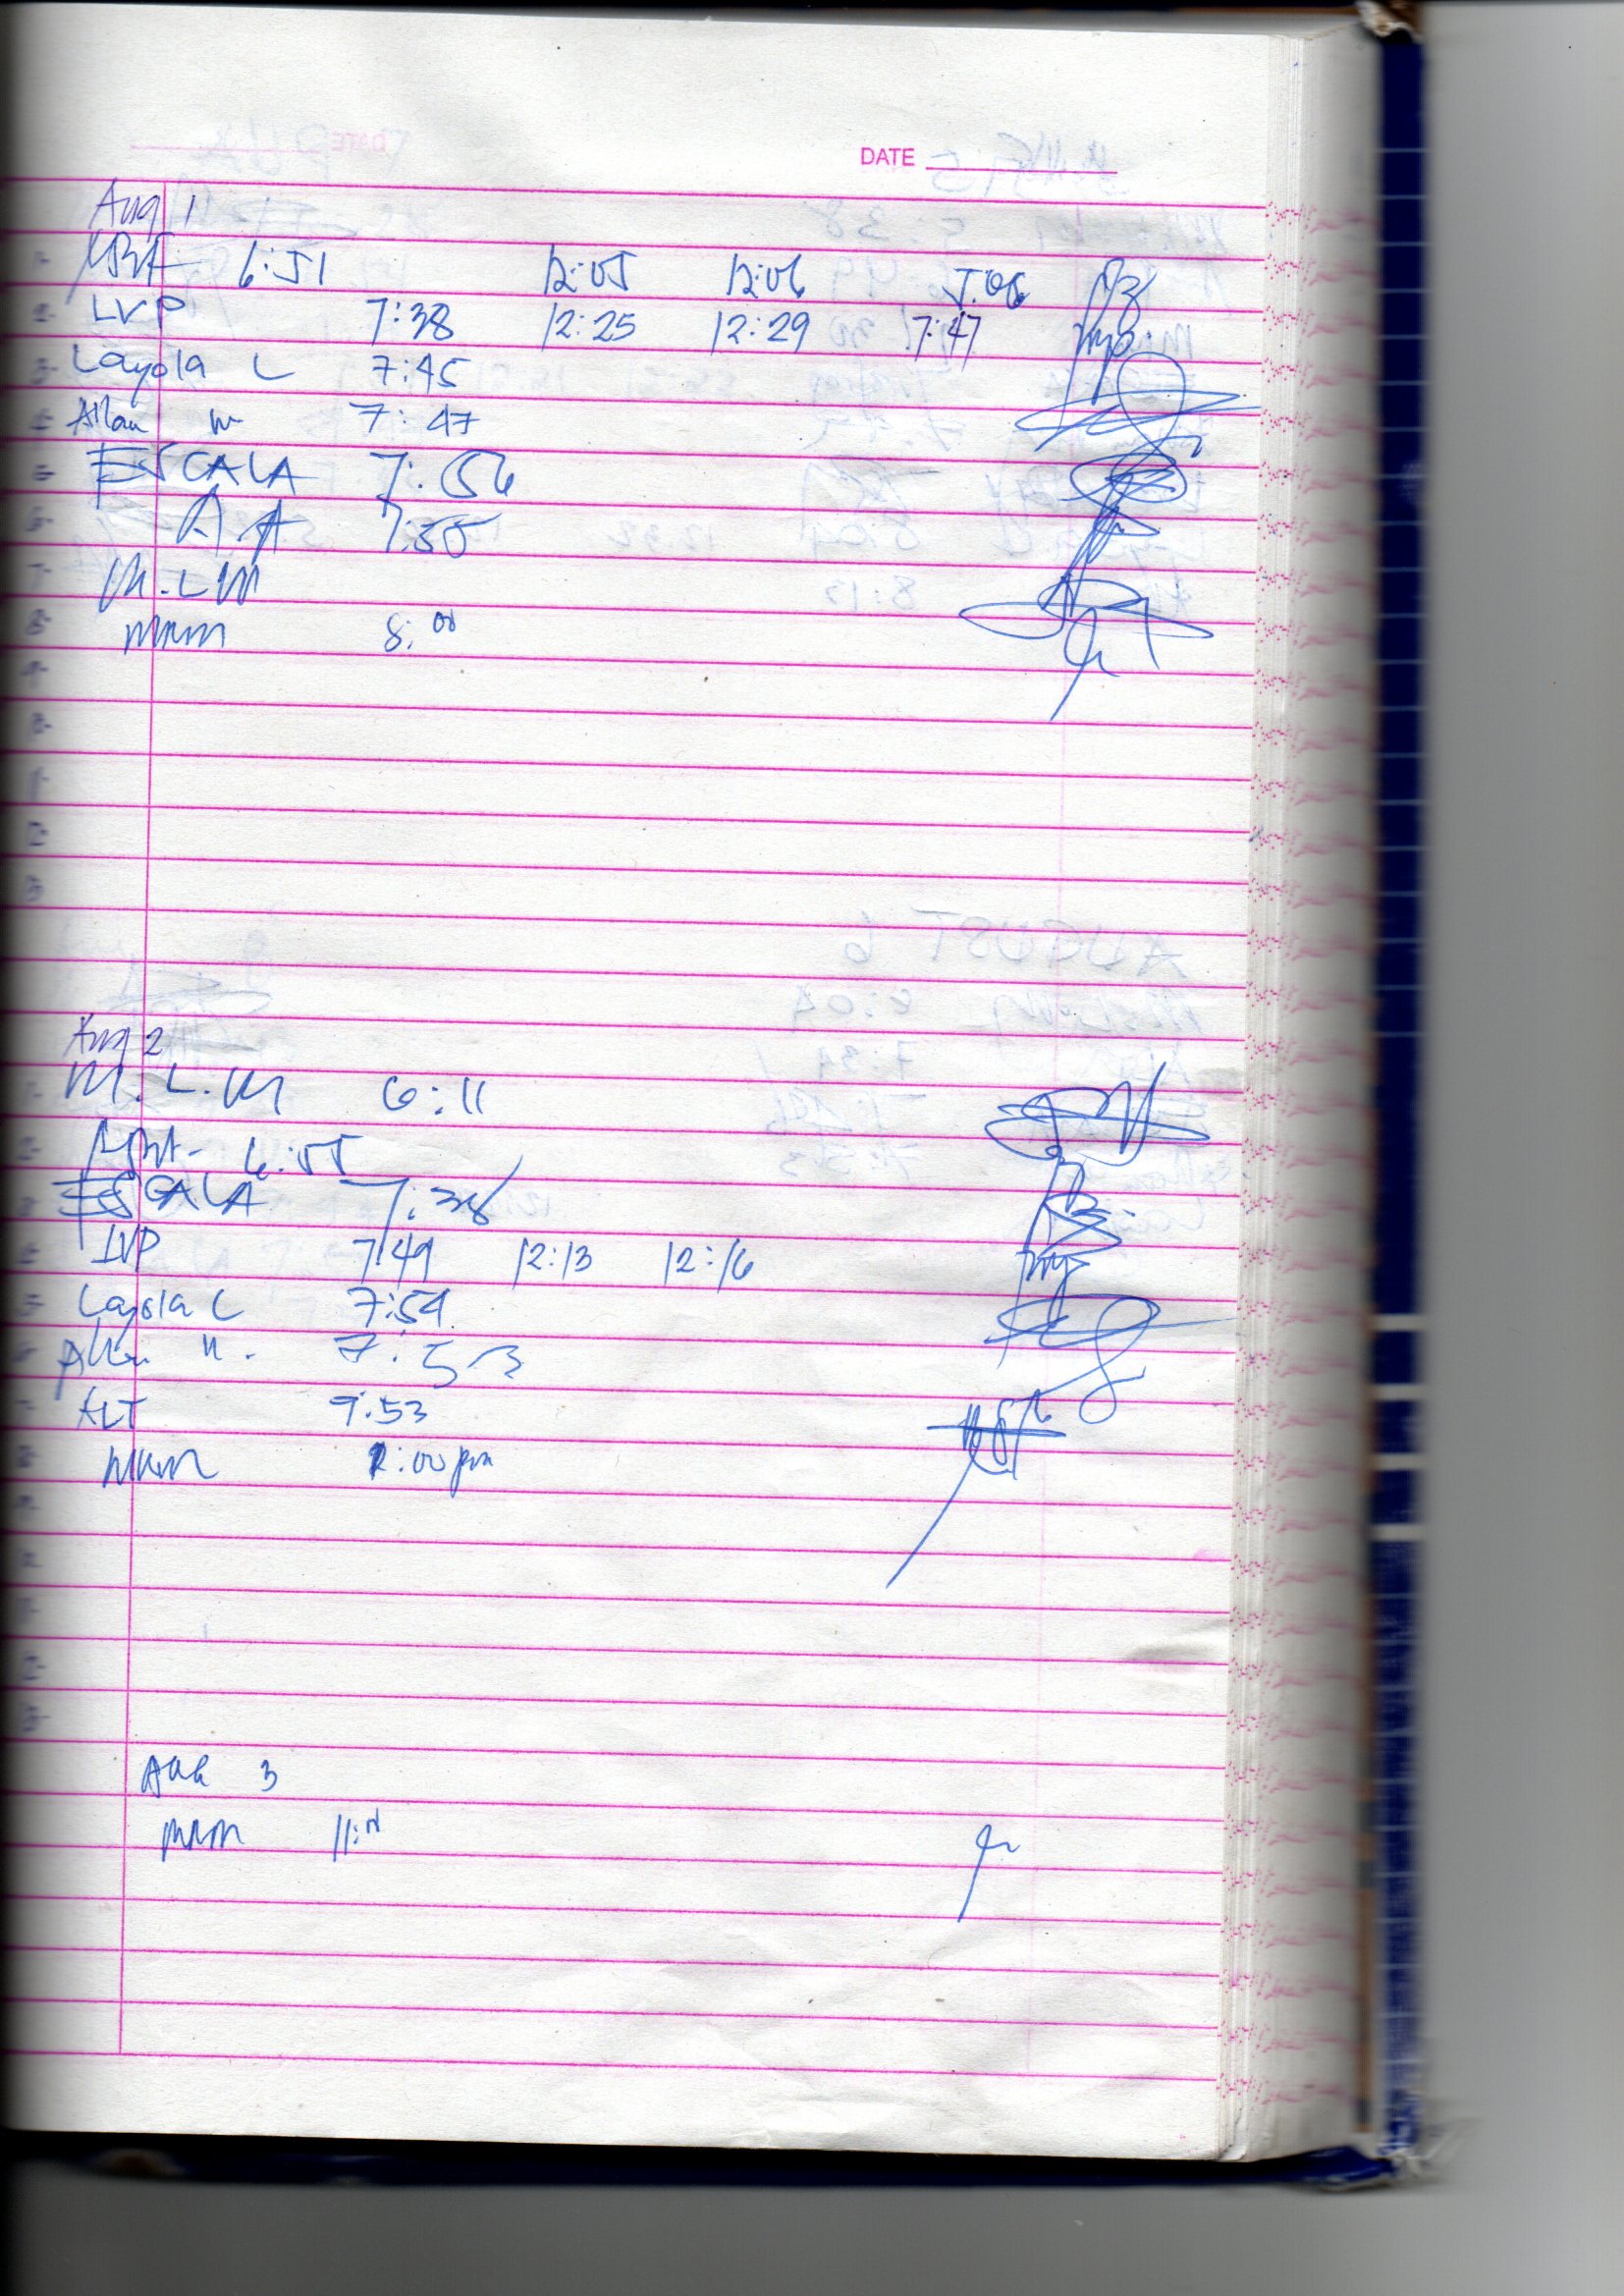 DATE
Aug 1
6:51 12:05 12:06 5:06
LVP 7:38 12:25 12:29 7:47
Layola L 7:45
Allan 7:47
ESCALA 7:56
A A 7:55
M.L.M
MRM 8:00
Aug 2
M.L.M 6:11
6:55
ESCALA 7:38
LVP 7:49 12:13 12:16
Layola L 7:54
Allan 7:53
ALT 9:53
MRM :00 pm
Aug 3
MRM 11:00